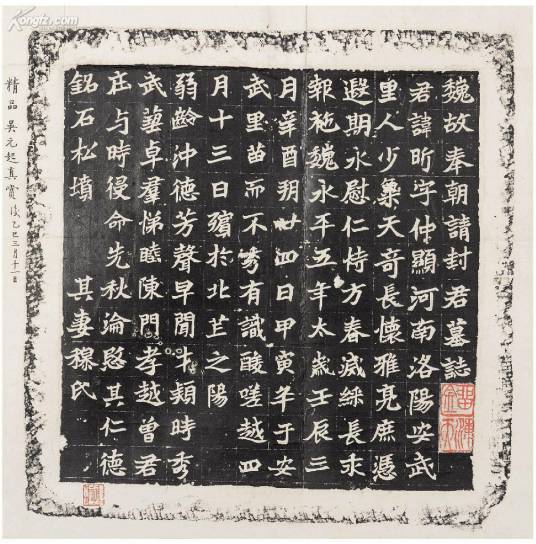 Kongfz.com
魏故奉朝請封君墓誌
君諱昕字仲顯河南洛陽安武
里人少稟天奇長懷雅亮庶憑
遐期永慰仁恃方春滅綵長乖
報施魏永平五年太歲壬辰三
月辛酉朔廿四日甲寅卒于安
武里苗而不秀有識酸嗟越四
月十三日殯於北芒之陽
弱齡沖德芳聲早聞才穎時秀
武藝卓羣悌睦陳門孝越曾君
庄与時侵命先秋淪愍其仁德
銘石松墳 其妻穆氏
精品 吳元起真賞 乙巳三月十一日